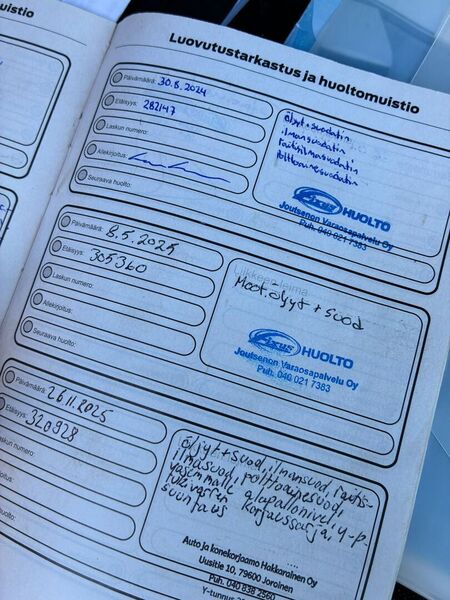 Luovutustarkastus ja huoltomuistio
Päivämäärä: 30.8.2024
Etäisyys: 282147
Laskun numero:
Allekirjoitus:
Seuraava huolto:
öljyt+suodatin
ilmansuodatin
raitisilmasuodatin
polttoainesuodatin
Fixus HUOLTO
Joutsenon Varaosapalvelu Oy
Puh. 040 021 7383
Päivämäärä: 8.5.2025
Etäisyys: 305360
Laskun numero:
Allekirjoitus:
Seuraava huolto:
Liikkeen leima
Moot.öljyt + suod
Fixus HUOLTO
Joutsenon Varaosapalvelu Oy
Puh. 040 021 7383
Päivämäärä: 26.11.2025
Etäisyys: 320928
Laskun numero:
Allekirjoitus:
öljyt+suod, ilmansuod, raitis-
ilmasuod, polttoainesuod,
vasemmalle alapallonivel, y-p.
tukivarren korjaussarja,
suuntaus
Auto ja konekorjaamo Hakkarainen Oy
Uusitie 10, 79600 Joroinen
Puh. 040 838 2560
Y-tunnus